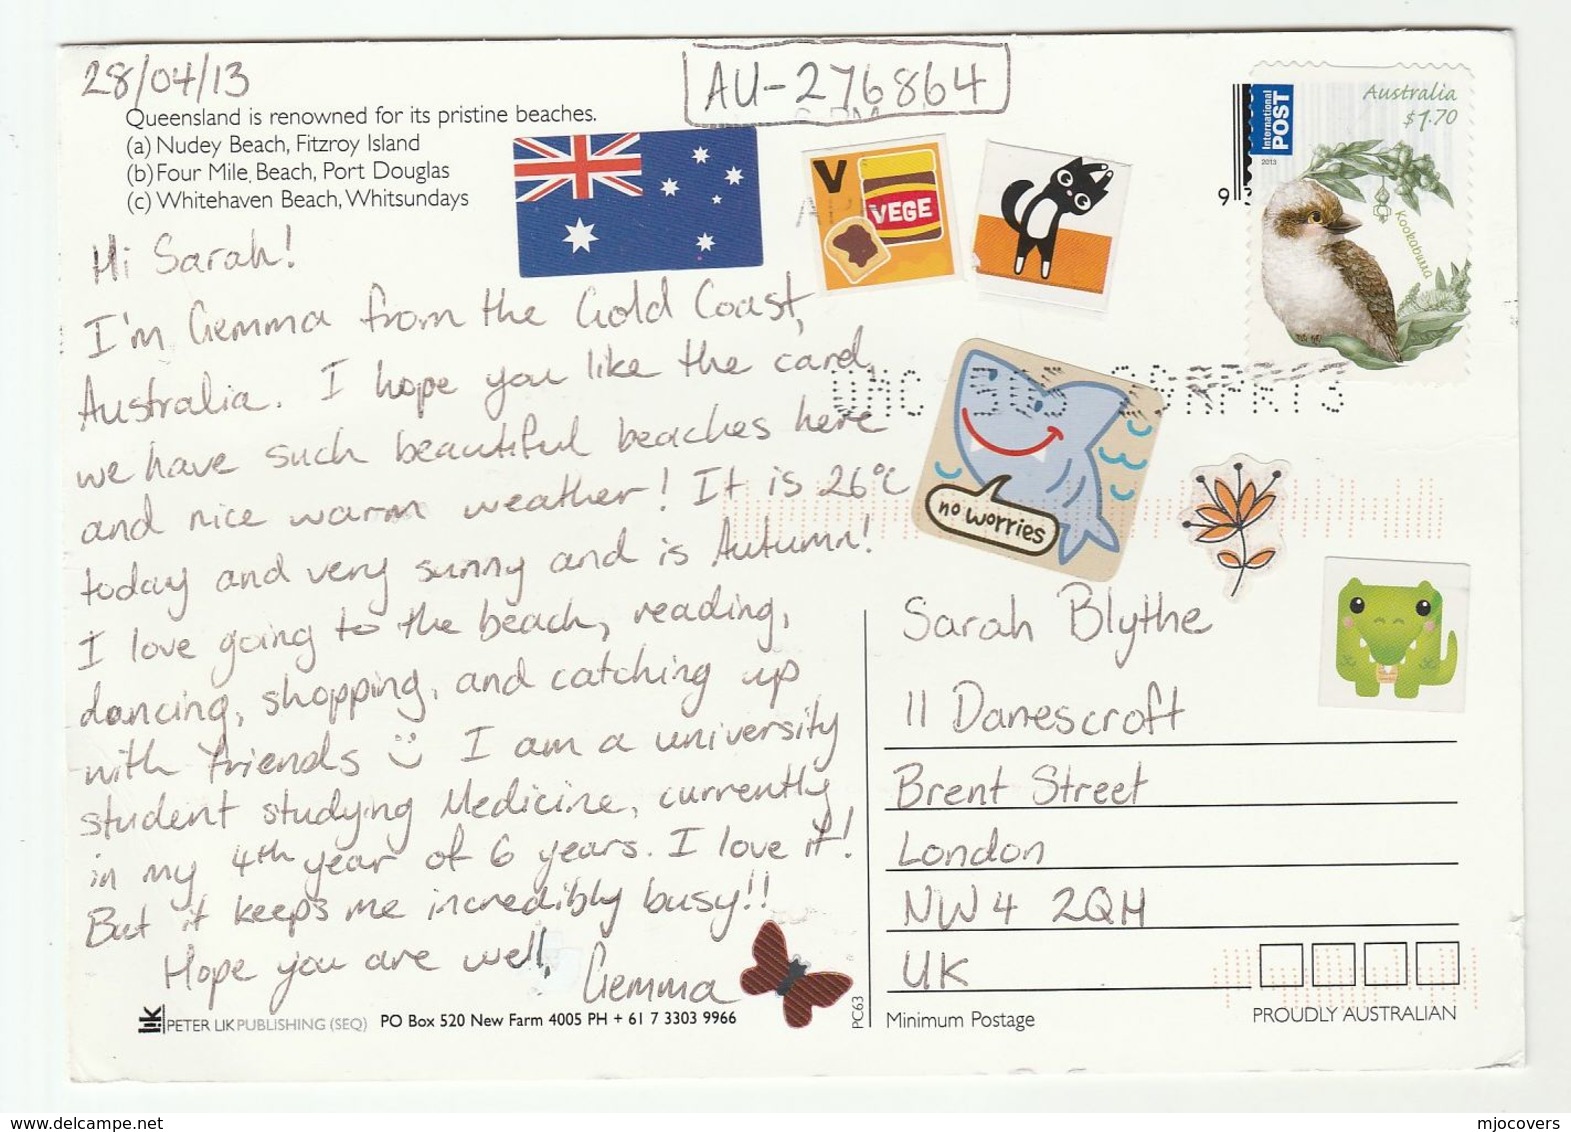 28/04/13
AU-276864
Queensland is renowned for its pristine beaches.
(a) Nudey Beach, Fitzroy Island
(b) Four Mile Beach, Port Douglas
(c) Whitehaven Beach, Whitsundays
V
VEGE
International
POST
2013
Australia
$1.70
Kookaburra
Hi Sarah!
I'm Gemma from the Gold Coast,
Australia. I hope you like the card,
we have such beautiful beaches here
and nice warm weather! It is 26°C
today and very sunny and is Autumn!
I love going to the beach, reading,
dancing, shopping, and catching up
with friends I am a university
student studying Medicine, currently
in my 4th year of 6 years. I love it!
But it keeps me incredibly busy!!
Hope you are well,
Gemma
no worries
Sarah Blythe
11 Danescroft
Brent Street
London
NW4 2QH
UK
PETER LIK PUBLISHING (SEQ) PO Box 520 New Farm 4005 PH + 61 7 3303 9966
PC63
Minimum Postage
PROUDLY AUSTRALIAN
delcampe.net
mjocovers